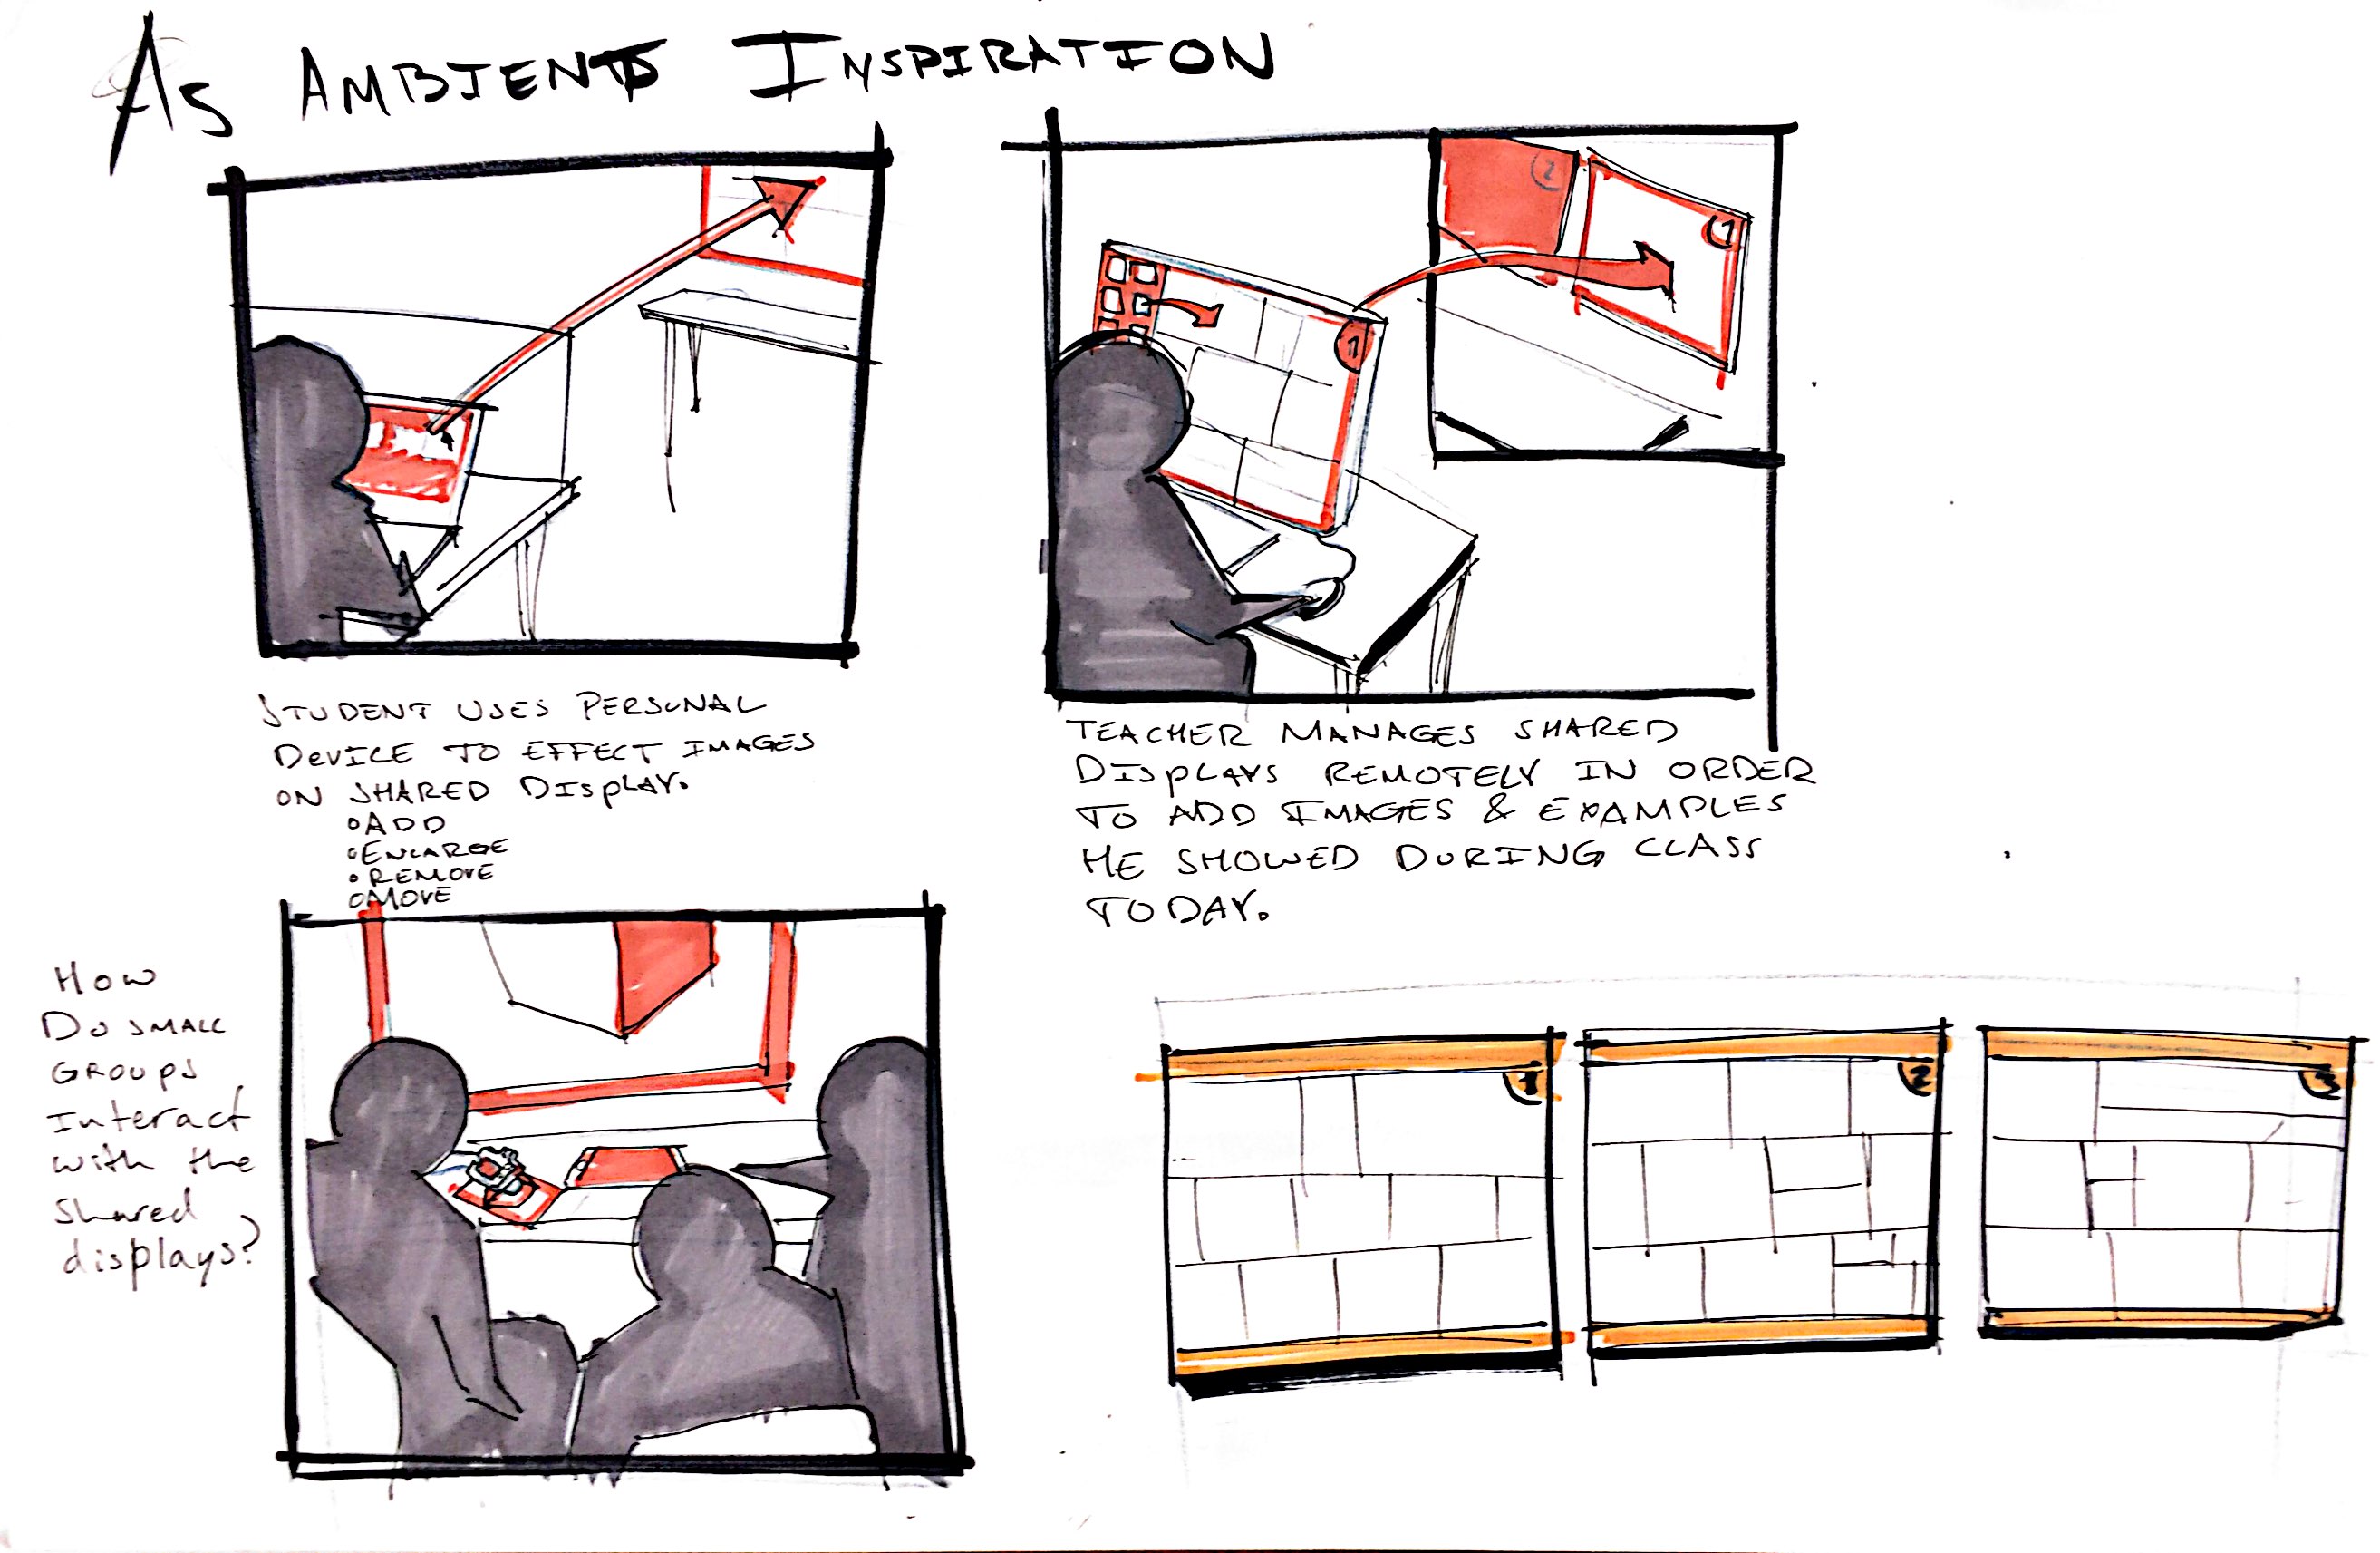 As AMBIENT INSPIRATION
2
1
1
STUDENT USES PERSONAL
DEVICE TO EFFECT IMAGES
ON SHARED DISPLAY.
• ADD
• ENLARGE
• REMOVE
• MOVE
TEACHER MANAGES SHARED
DISPLAYS REMOTELY IN ORDER
TO ADD IMAGES & EXAMPLES
HE SHOWED DURING CLASS
TODAY.
How
Do SMALL
GROUPS
Interact
with the
Shared
displays?
1
2
3